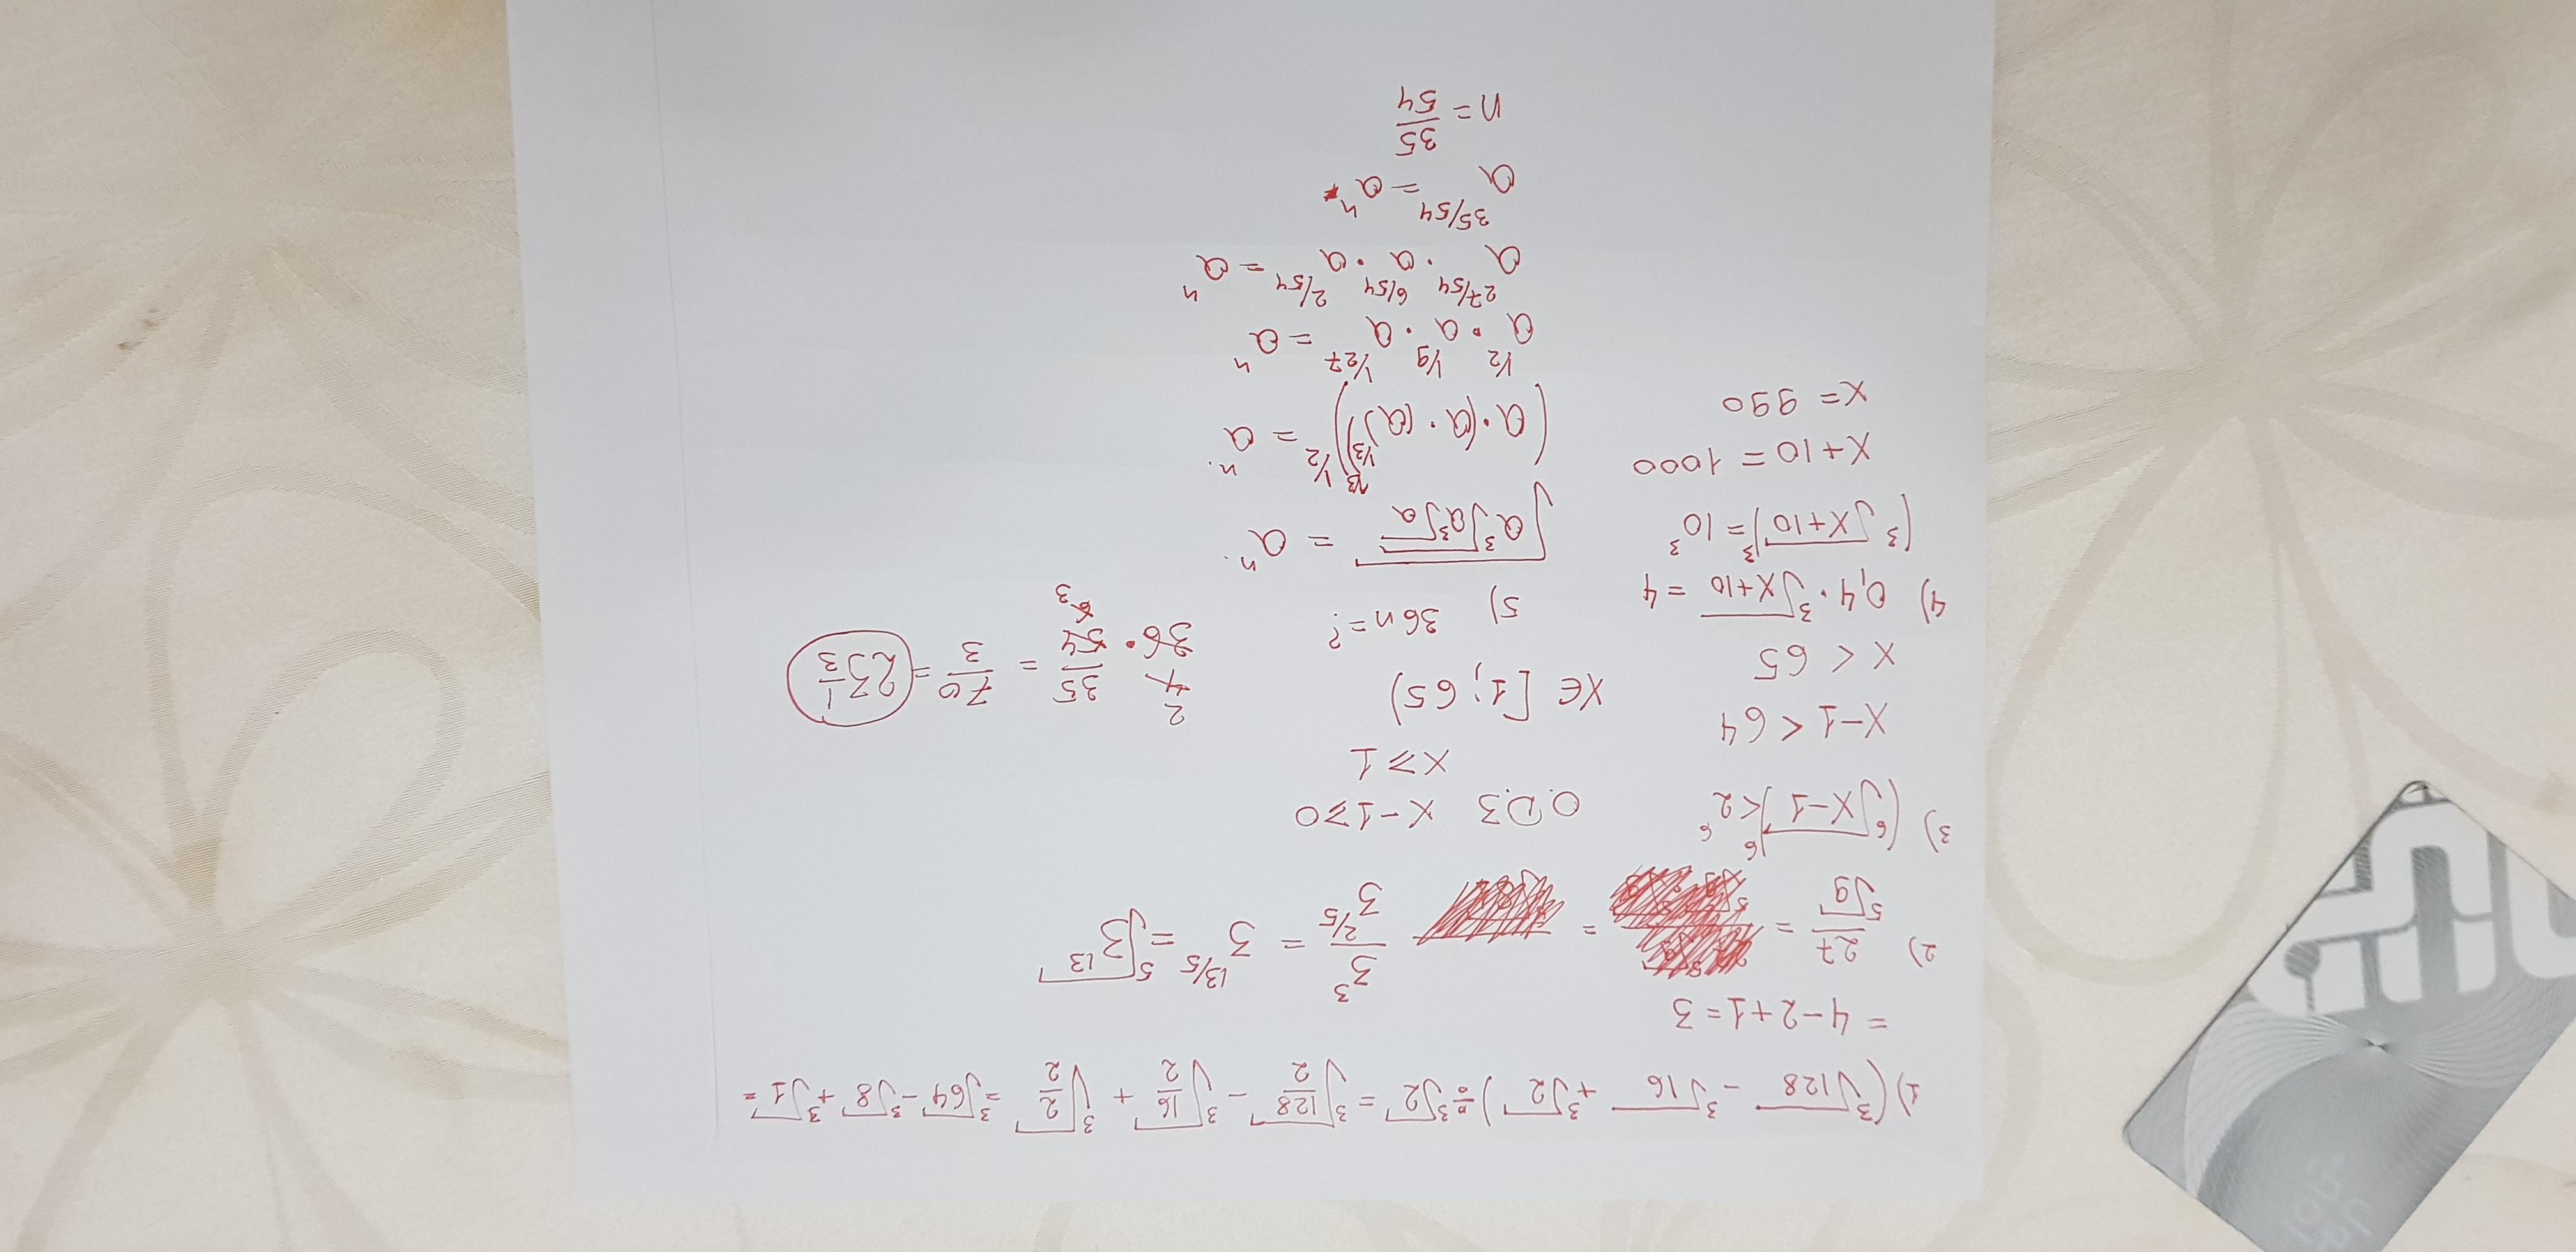 1) (∛128 - ∛16 + ∛2) ÷ ∛2 = ∛(128/2) - ∛(16/2) + ∛(2/2) = ∛64 - ∛8 + ∛1 =
= 4-2+1=3
2) 27/⁵√9 = = 3³/3^(2/5) = 3^(13/5) = ⁵√3¹³
3) (⁶√x-1)⁶<2⁶ О.D.З x-1≥0
x-1 < 64 x≥1
x < 65 x∈[1; 65)
4) 0,4·∛x+10 = 4
(∛x+10)³=10³
x+10 = 1000
x= 990
5) 36n=?
√a∛a∛a = aⁿ
(a·(a·(a)^1/3)^1/3)^1/2 = aⁿ
a^1/2·a^1/9·a^1/27 = aⁿ
a^27/54·a^6/54·a^2/54 = aⁿ
a^35/54 = aⁿ
n= 35/54
36·35/54 = 70/3 = 23 1/3